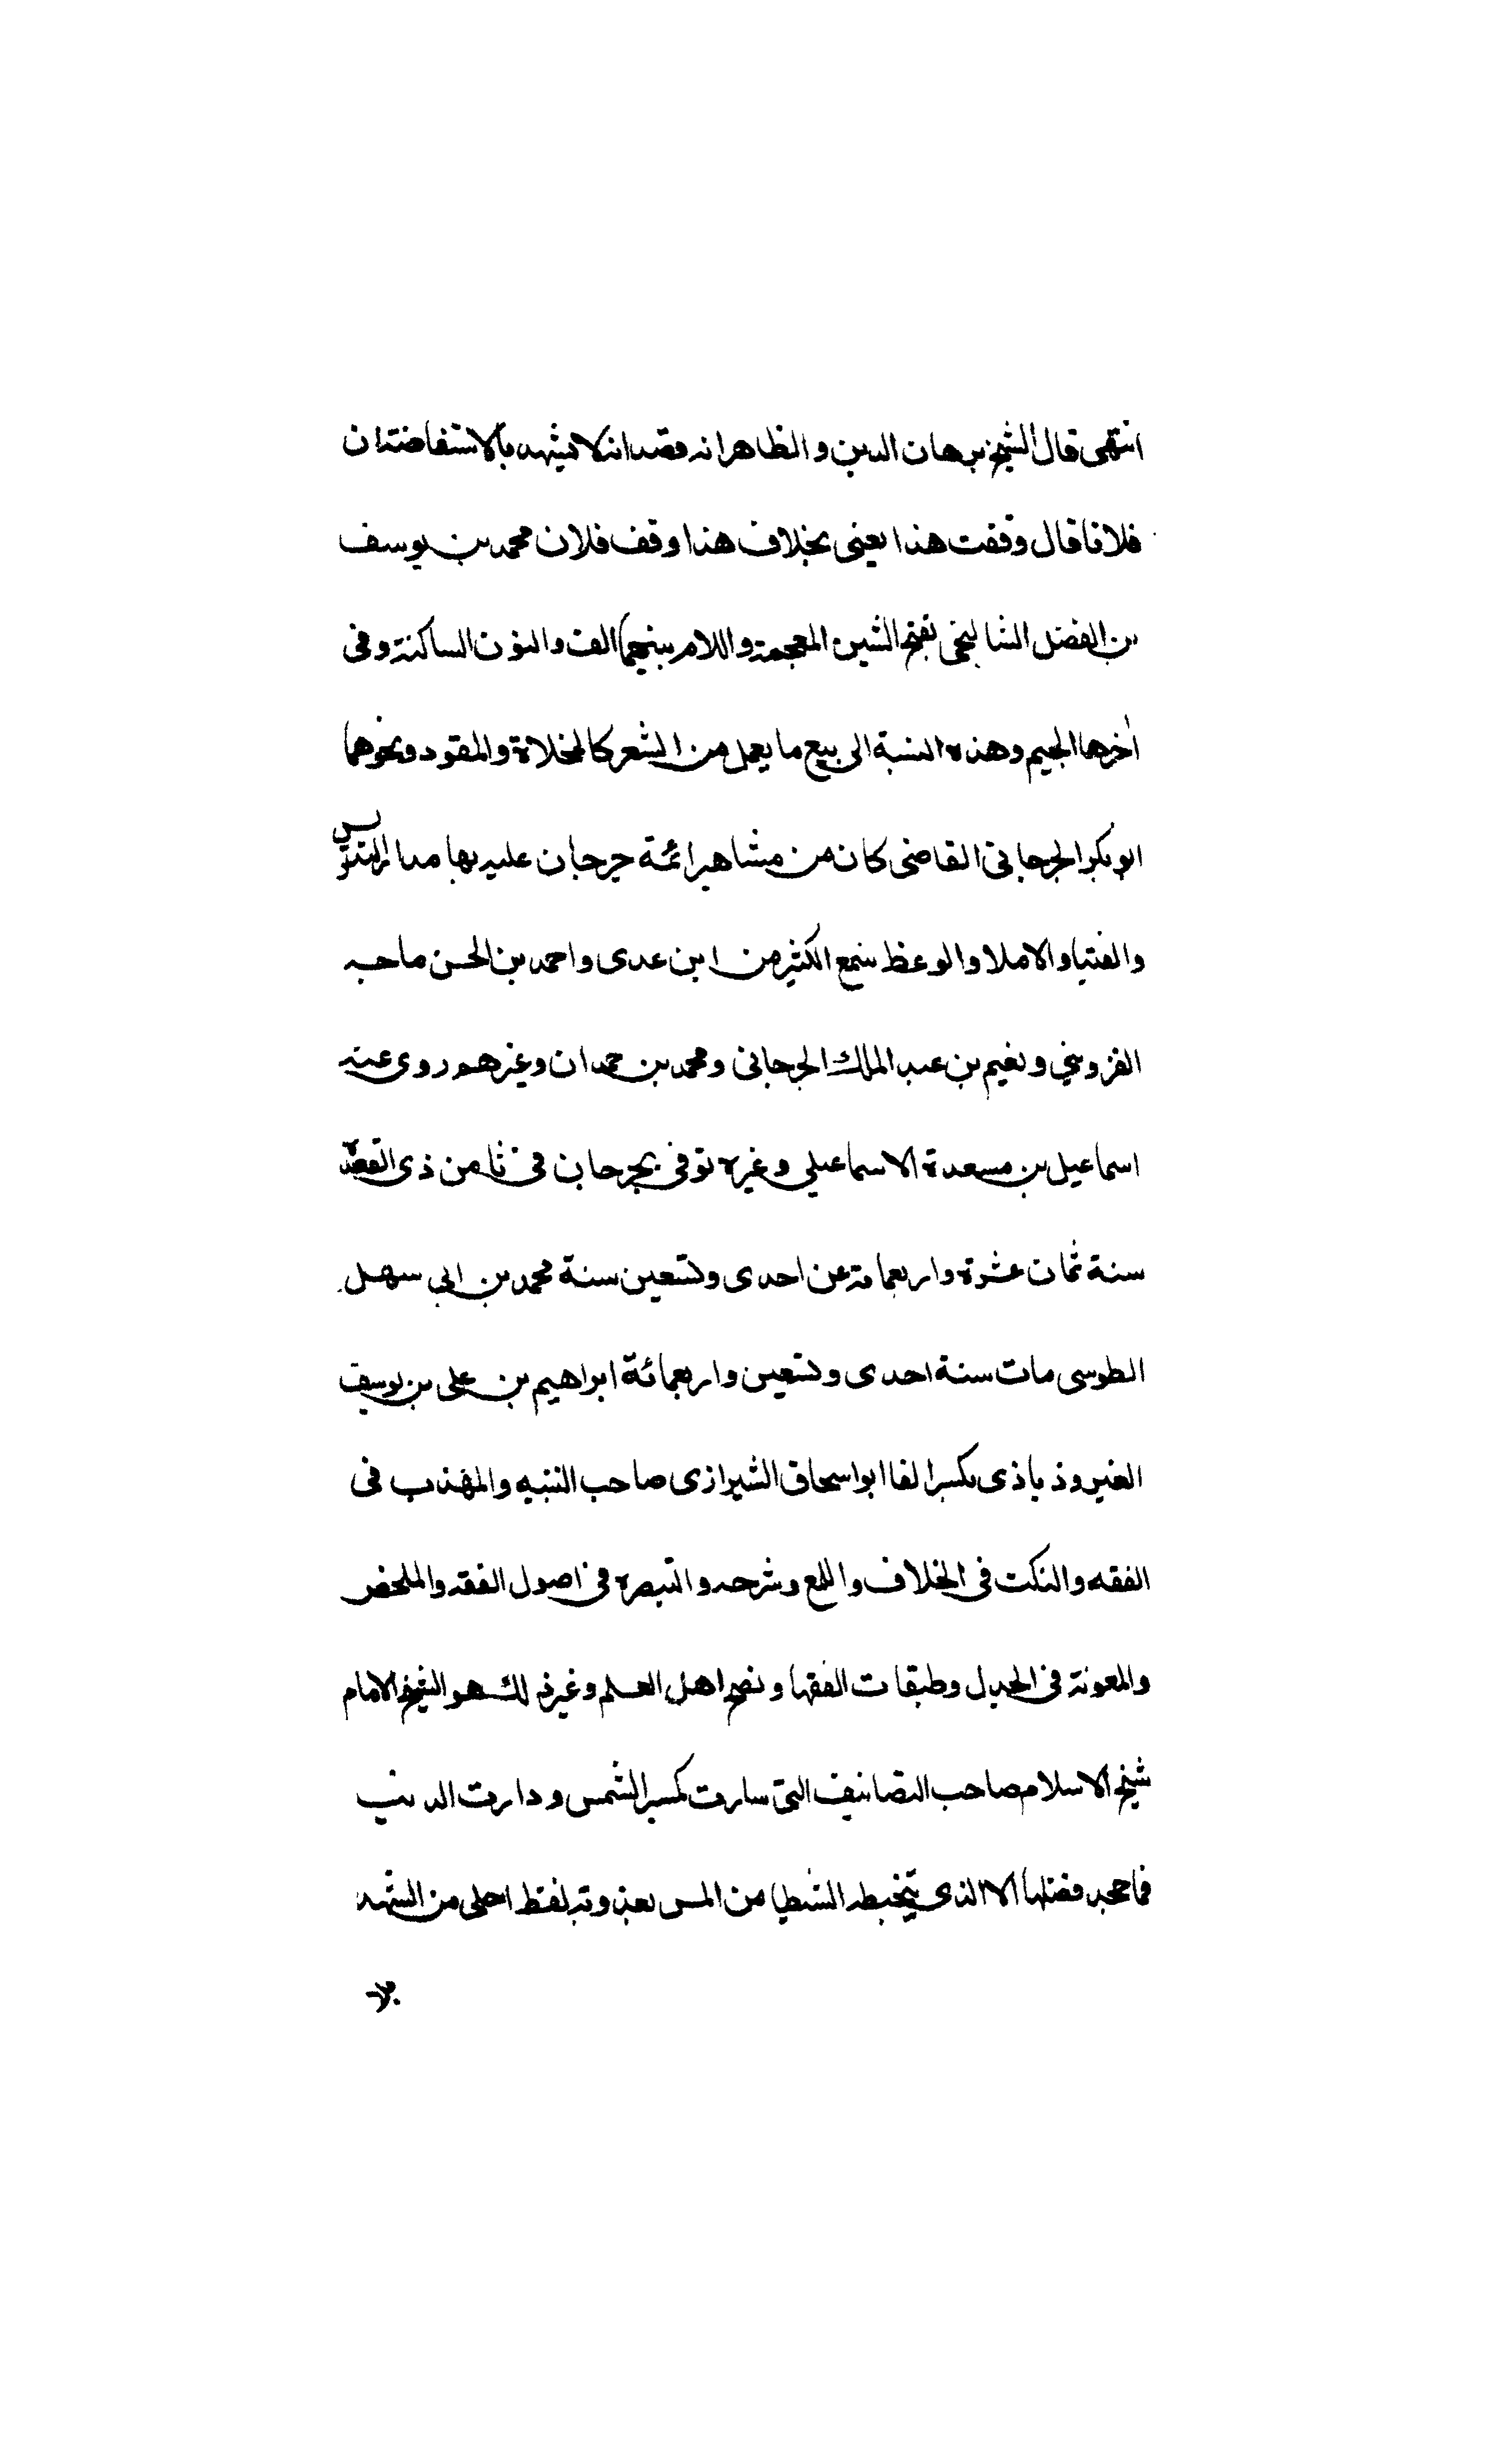 انتهى قال الشيخ برهان الدين والظاهر انه قصد انه لا يشهد بالاستفاضة ان
فلانا قال وقفت هذا يعنى بخلاف هذا وقف فلان محمد بن يوسف
بن الفضل الشالنجى بفتح الشين المعجمة واللام بينهما الف والنون الساكنة وفى
اخرها الجيم وهذه النسبة الى بيع ما يعمل من الشعر كالمخلاة والمقود ونحوهما
ابو بكر الجرجانى القاضى كان من مشاهير ائمة جرجان عليه بها مدار التدريس
والفتيا والاملا والوعظ سمع الكثير من ابن عدى واحمد بن الحسن ماحه
القزوينى ونعيم بن عبد الملك الجرجانى ومحمد بن حمدان وغيرهم روى عنه
اسماعيل بن مسعدة الاسماعيلى وغيره توفى بجرجان فى ثامن ذى القعدة
سنة ثمان عشرة واربعماة عن احدى وتسعين سنة محمد بن ابى سهل
الطوسى مات سنة احدى وتسعين واربعمائة ابراهيم بن على بن يوسف
الفيروذباذى بكسر الفا ابو اسحاق الشيرازى صاحب التنبيه والمهذب فى
الفقه والنكت فى الخلاف واللمع وشرحه والتبصرة فى اصول الفقه والملخص
والمعونة فى الجدل وطبقات الفقها ونصح اهل العلم وغير ذلك هو الشيخ الامام
شيخ الاسلام صاحب التصانيف التى سارت كمسير الشمس ودارت الدنيا
فما جحد فضلها الا الذى يتخبطه الشيطا من المس بعذوبة لفظ احلى من الشهد